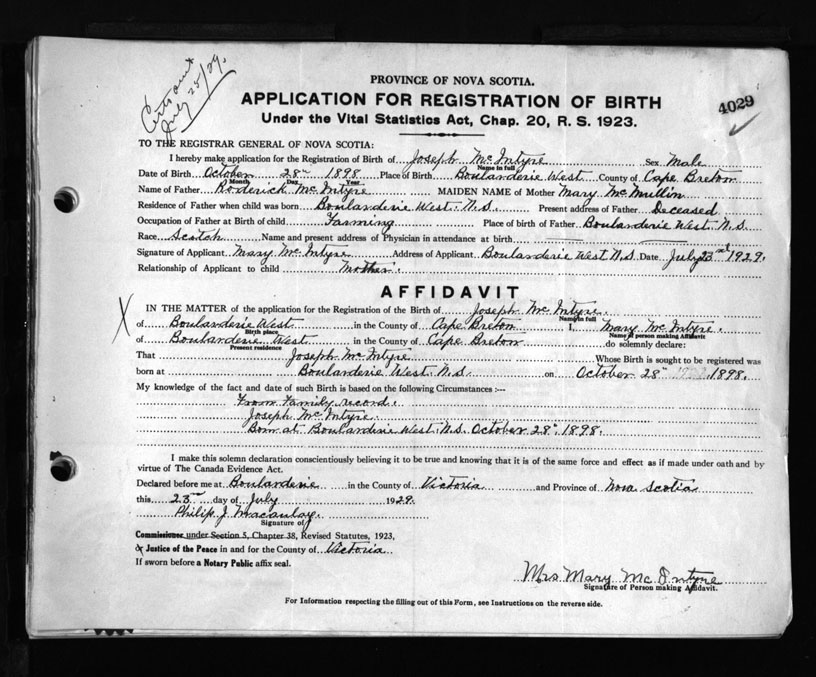 Certs out
July 25/29.
PROVINCE OF NOVA SCOTIA.
APPLICATION FOR REGISTRATION OF BIRTH
4029
Under the Vital Statistics Act, Chap. 20, R. S. 1923.
TO THE REGISTRAR GENERAL OF NOVA SCOTIA:
I hereby make application for the Registration of Birth of Joseph McIntyre Sex Male
Name in full
Date of Birth October 28th 1898 Place of Birth Boularderie West County of Cape Breton
Month Day Year
Name of Father Roderick McIntyre MAIDEN NAME of Mother Mary McMullin
Residence of Father when child was born Boularderie West. N.S. Present address of Father Deceased
Occupation of Father at Birth of child Farming Place of birth of Father Boularderie West. N.S.
Race Scotch Name and present address of Physician in attendance at birth
Signature of Applicant Mary McIntyre Address of Applicant Boularderie West N.S. Date July 23rd 1929.
Relationship of Applicant to child Mother.
AFFIDAVIT
X
IN THE MATTER of the application for the Registration of the Birth of Joseph McIntyre.
Name in full
of Boularderie West in the County of Cape Breton I, Mary McIntyre.
Birth place Name of person making Affidavit
of Boularderie West in the County of Cape Breton do solemnly declare:
Present residence
That Joseph McIntyre Whose Birth is sought to be registered was
born at Boularderie West N.S. on October 28th 1898.
My knowledge of the fact and date of such Birth is based on the following Circumstances :—
From Family record.
Joseph McIntyre.
Born at Boularderie West. N.S. October 28th, 1898.
I make this solemn declaration conscientiously believing it to be true and knowing that it is of the same force and effect as if made under oath and by
virtue of The Canada Evidence Act.
Declared before me at Boularderie in the County of Victoria and Province of Nova Scotia
this 23rd day of July 1929.
Philip J. Macaulay.
Signature of
Commissioner under Section 5, Chapter 38, Revised Statutes, 1923,
or Justice of the Peace in and for the County of Victoria
If sworn before a Notary Public affix seal.
Mrs Mary McIntyre
Signature of Person making Affidavit.
For Information respecting the filling out of this Form, see Instructions on the reverse side.